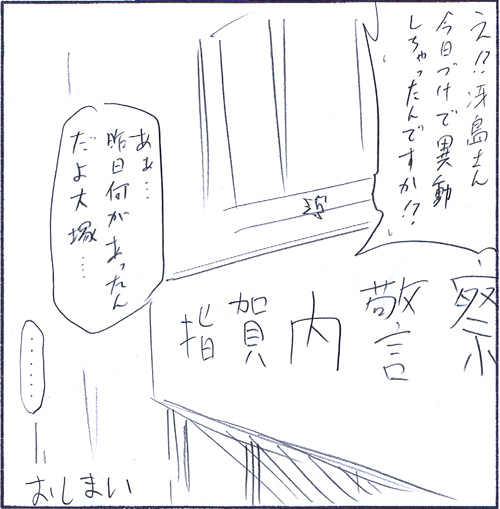 え!?冴島さん
今日づけで異動
しちゃったんですか!?
あぁ…
昨日何があったん
だよ大塚……
指賀内警察
………
おしまい